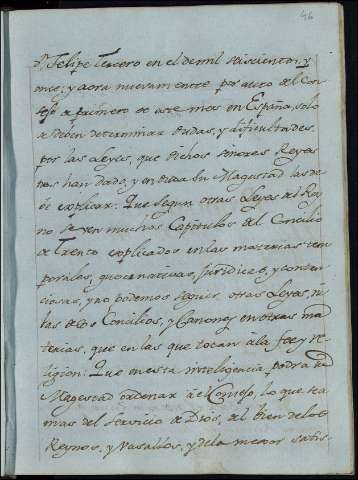 46
Dn. Felipe Tercero en el de mil seiscientos, y
once; y aora nuevamente por auto del Con
sejo a primero de este mes en España, solo
se deben determinar dudas, y dificultades
por las Leyes, que dichos señores Reyes
nos han dado, y en duda su Magestad las de
be explicar: Que segun otras Leyes del Rey
no se ven muchos Capitulos del Concilio
de Trento explicados en las materias tem
porales, guvernativas, Juridicas, y conten
ciosas, y no podemos seguir otras Leyes, ni
las de los Concilios, y Canones en otras ma
terias, que en las que tocan â la feè, y re
ligion: Que en esta inteligencia podra su
Magestad ordenar â el Consejo, lo que sea
mas del Servicio de Dios, al bien de los
Reynos, y Vasallos, y de la menor satis-